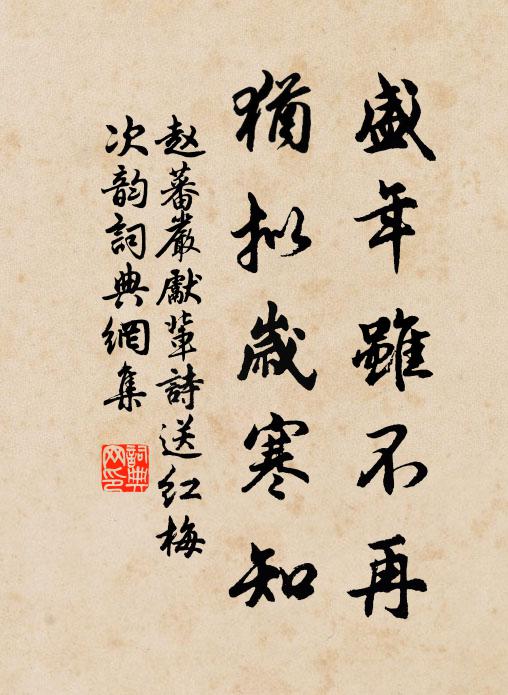 盛年雖不再
猶拟歲寒知
赵蕃嚴獻輩詩送红梅
次韵詞典網集
詞典网印